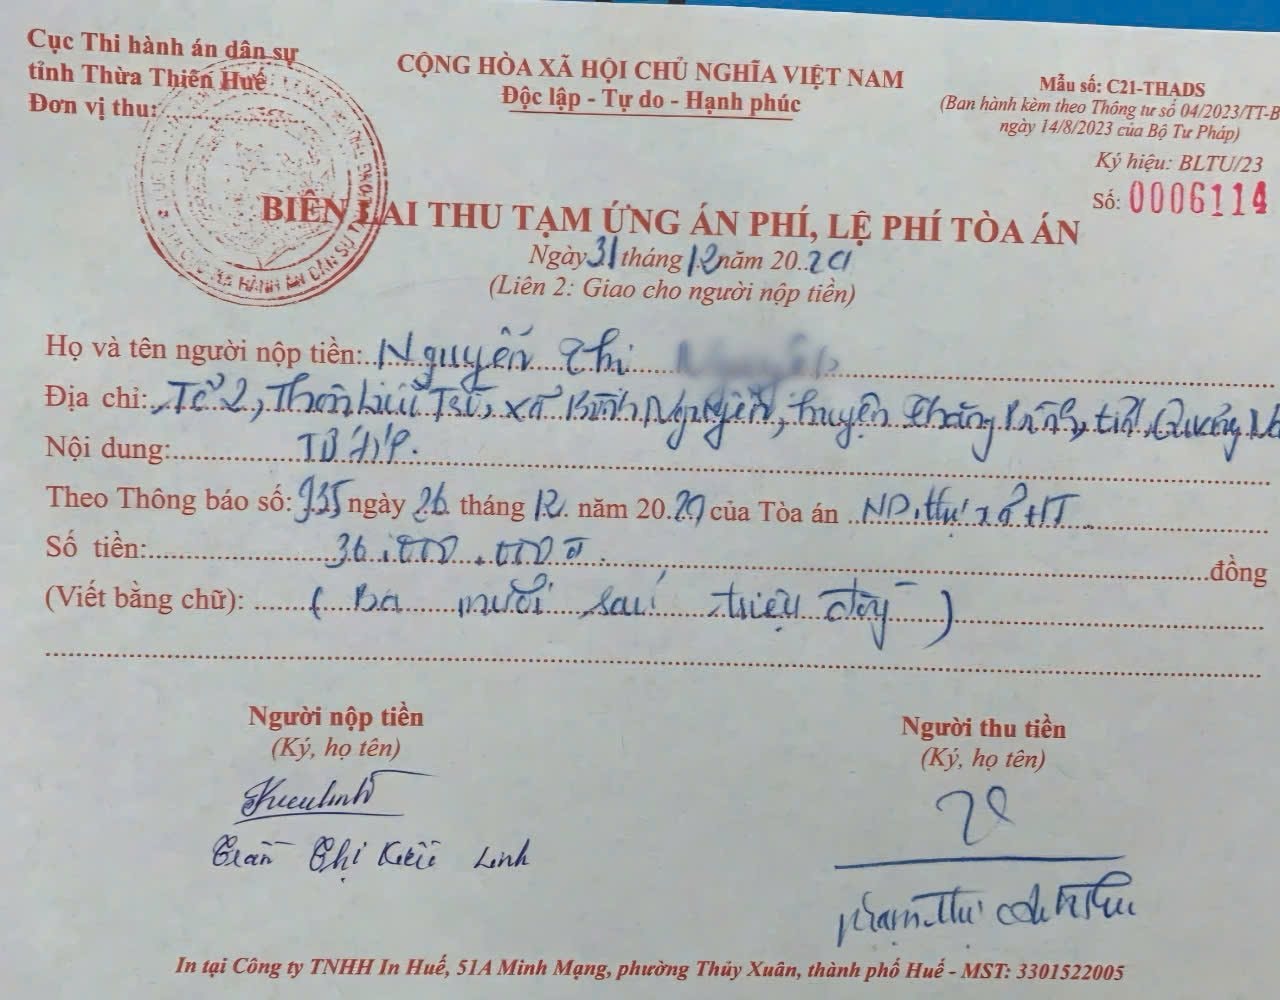 Cục Thi hành án dân sự
tỉnh Thừa Thiên Huế
Đơn vị thu:
CỘNG HÒA XÃ HỘI CHỦ NGHĨA VIỆT NAM
Độc lập - Tự do - Hạnh phúc
Mẫu số: C21-THADS
(Ban hành kèm theo Thông tư số 04/2023/TT-B
ngày 14/8/2023 của Bộ Tư Pháp)
Ký hiệu: BLTU/23
Số: 0006114
BIÊN LAI THU TẠM ỨNG ÁN PHÍ, LỆ PHÍ TÒA ÁN
Ngày 31 tháng 12 năm 20
(Liên 2: Giao cho người nộp tiền)
Họ và tên người nộp tiền: Nguyễn Thị
Địa chỉ: Tổ 2, Thôn Liễu Trì, xã Bình Nguyên, huyện Thăng Bình, tỉnh Quảng
Nội dung:
Theo Thông báo số: 935 ngày 26 tháng 12 năm 20 của Tòa án
Số tiền: 36.000.000đ đồng
(Viết bằng chữ): (Ba mươi sáu triệu đồng)
Người nộp tiền
(Ký, họ tên)
Trần Thị Kiều Linh
Người thu tiền
(Ký, họ tên)
Phạm Thị
In tại Công ty TNHH In Huế, 51A Minh Mạng, phường Thủy Xuân, thành phố Huế - MST: 3301522005